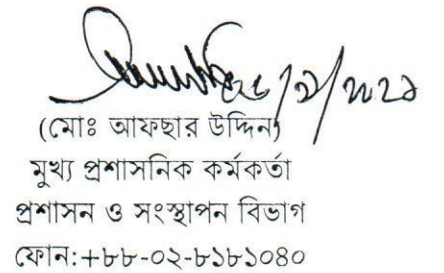 (মোঃ আফছার উদ্দিন)
মুখ্য প্রশাসনিক কর্মকর্তা
প্রশাসন ও সংস্থাপন বিভাগ
ফোন:+৮৮-০২-৮১৮১০৪০